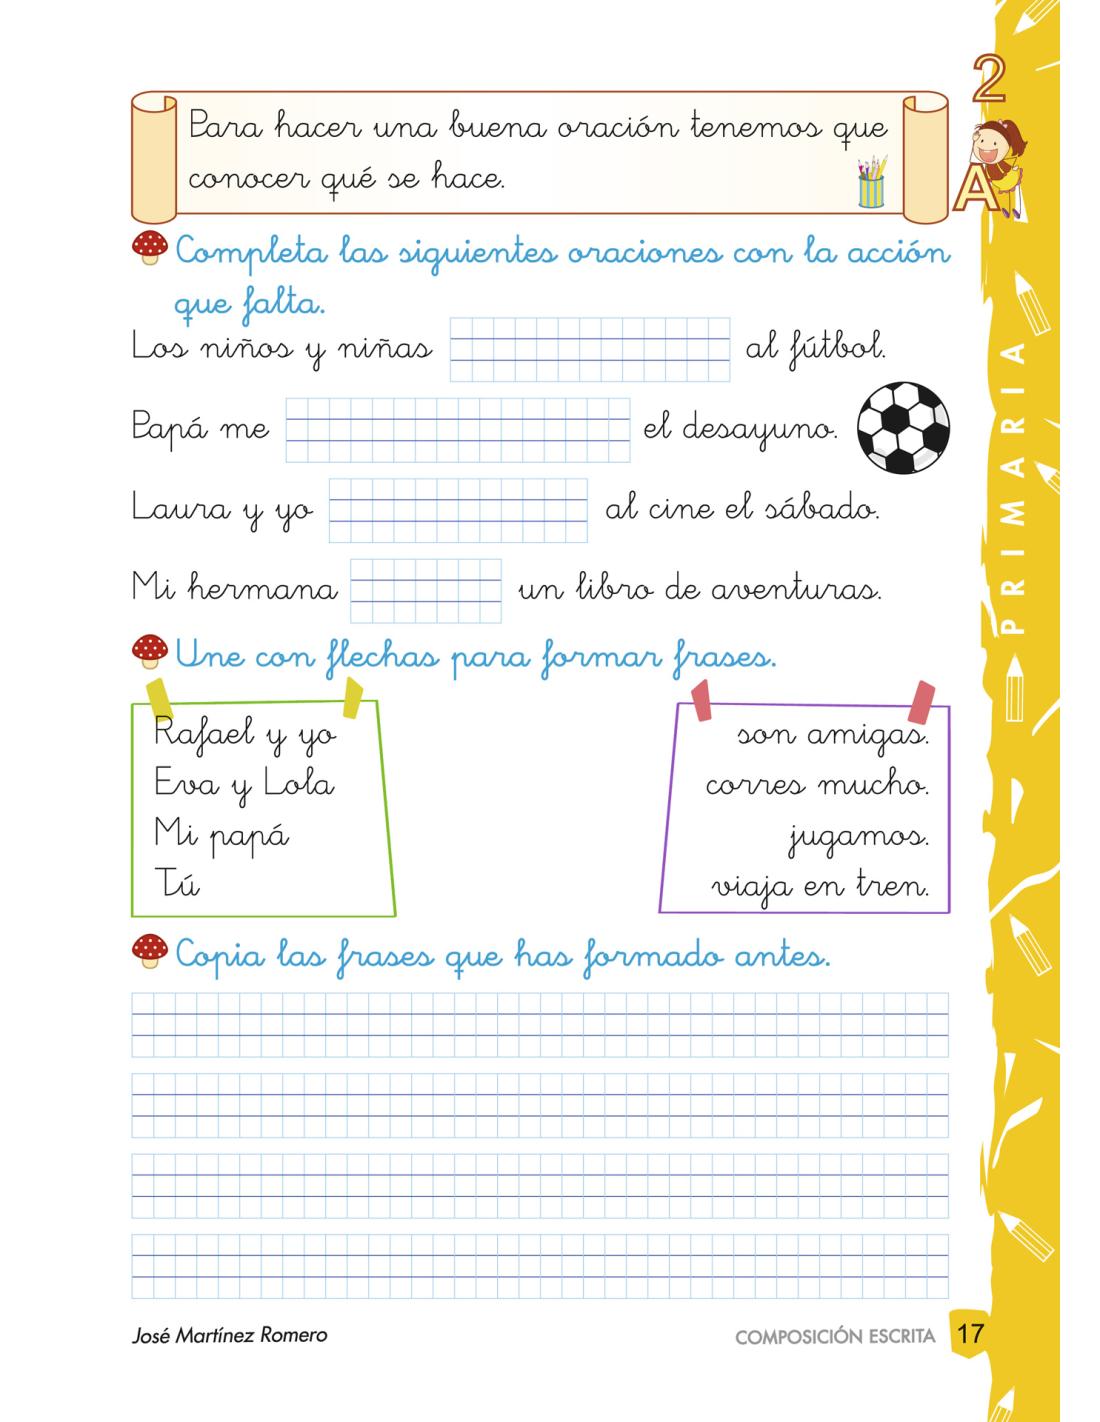 2
A
Para hacer una buena oración tenemos que
conocer qué se hace.
Completa las siguientes oraciones con la acción
que falta.
Los niños y niñas al fútbol.
Papá me el desayuno.
Laura y yo al cine el sábado.
Mi hermana un libro de aventuras.
Une con flechas para formar frases.
Rafael y yo
Eva y Lola
Mi papá
Tú
son amigas.
corres mucho.
jugamos.
viaja en tren.
Copia las frases que has formado antes.
PRIMARIA
José Martínez Romero
COMPOSICIÓN ESCRITA 17